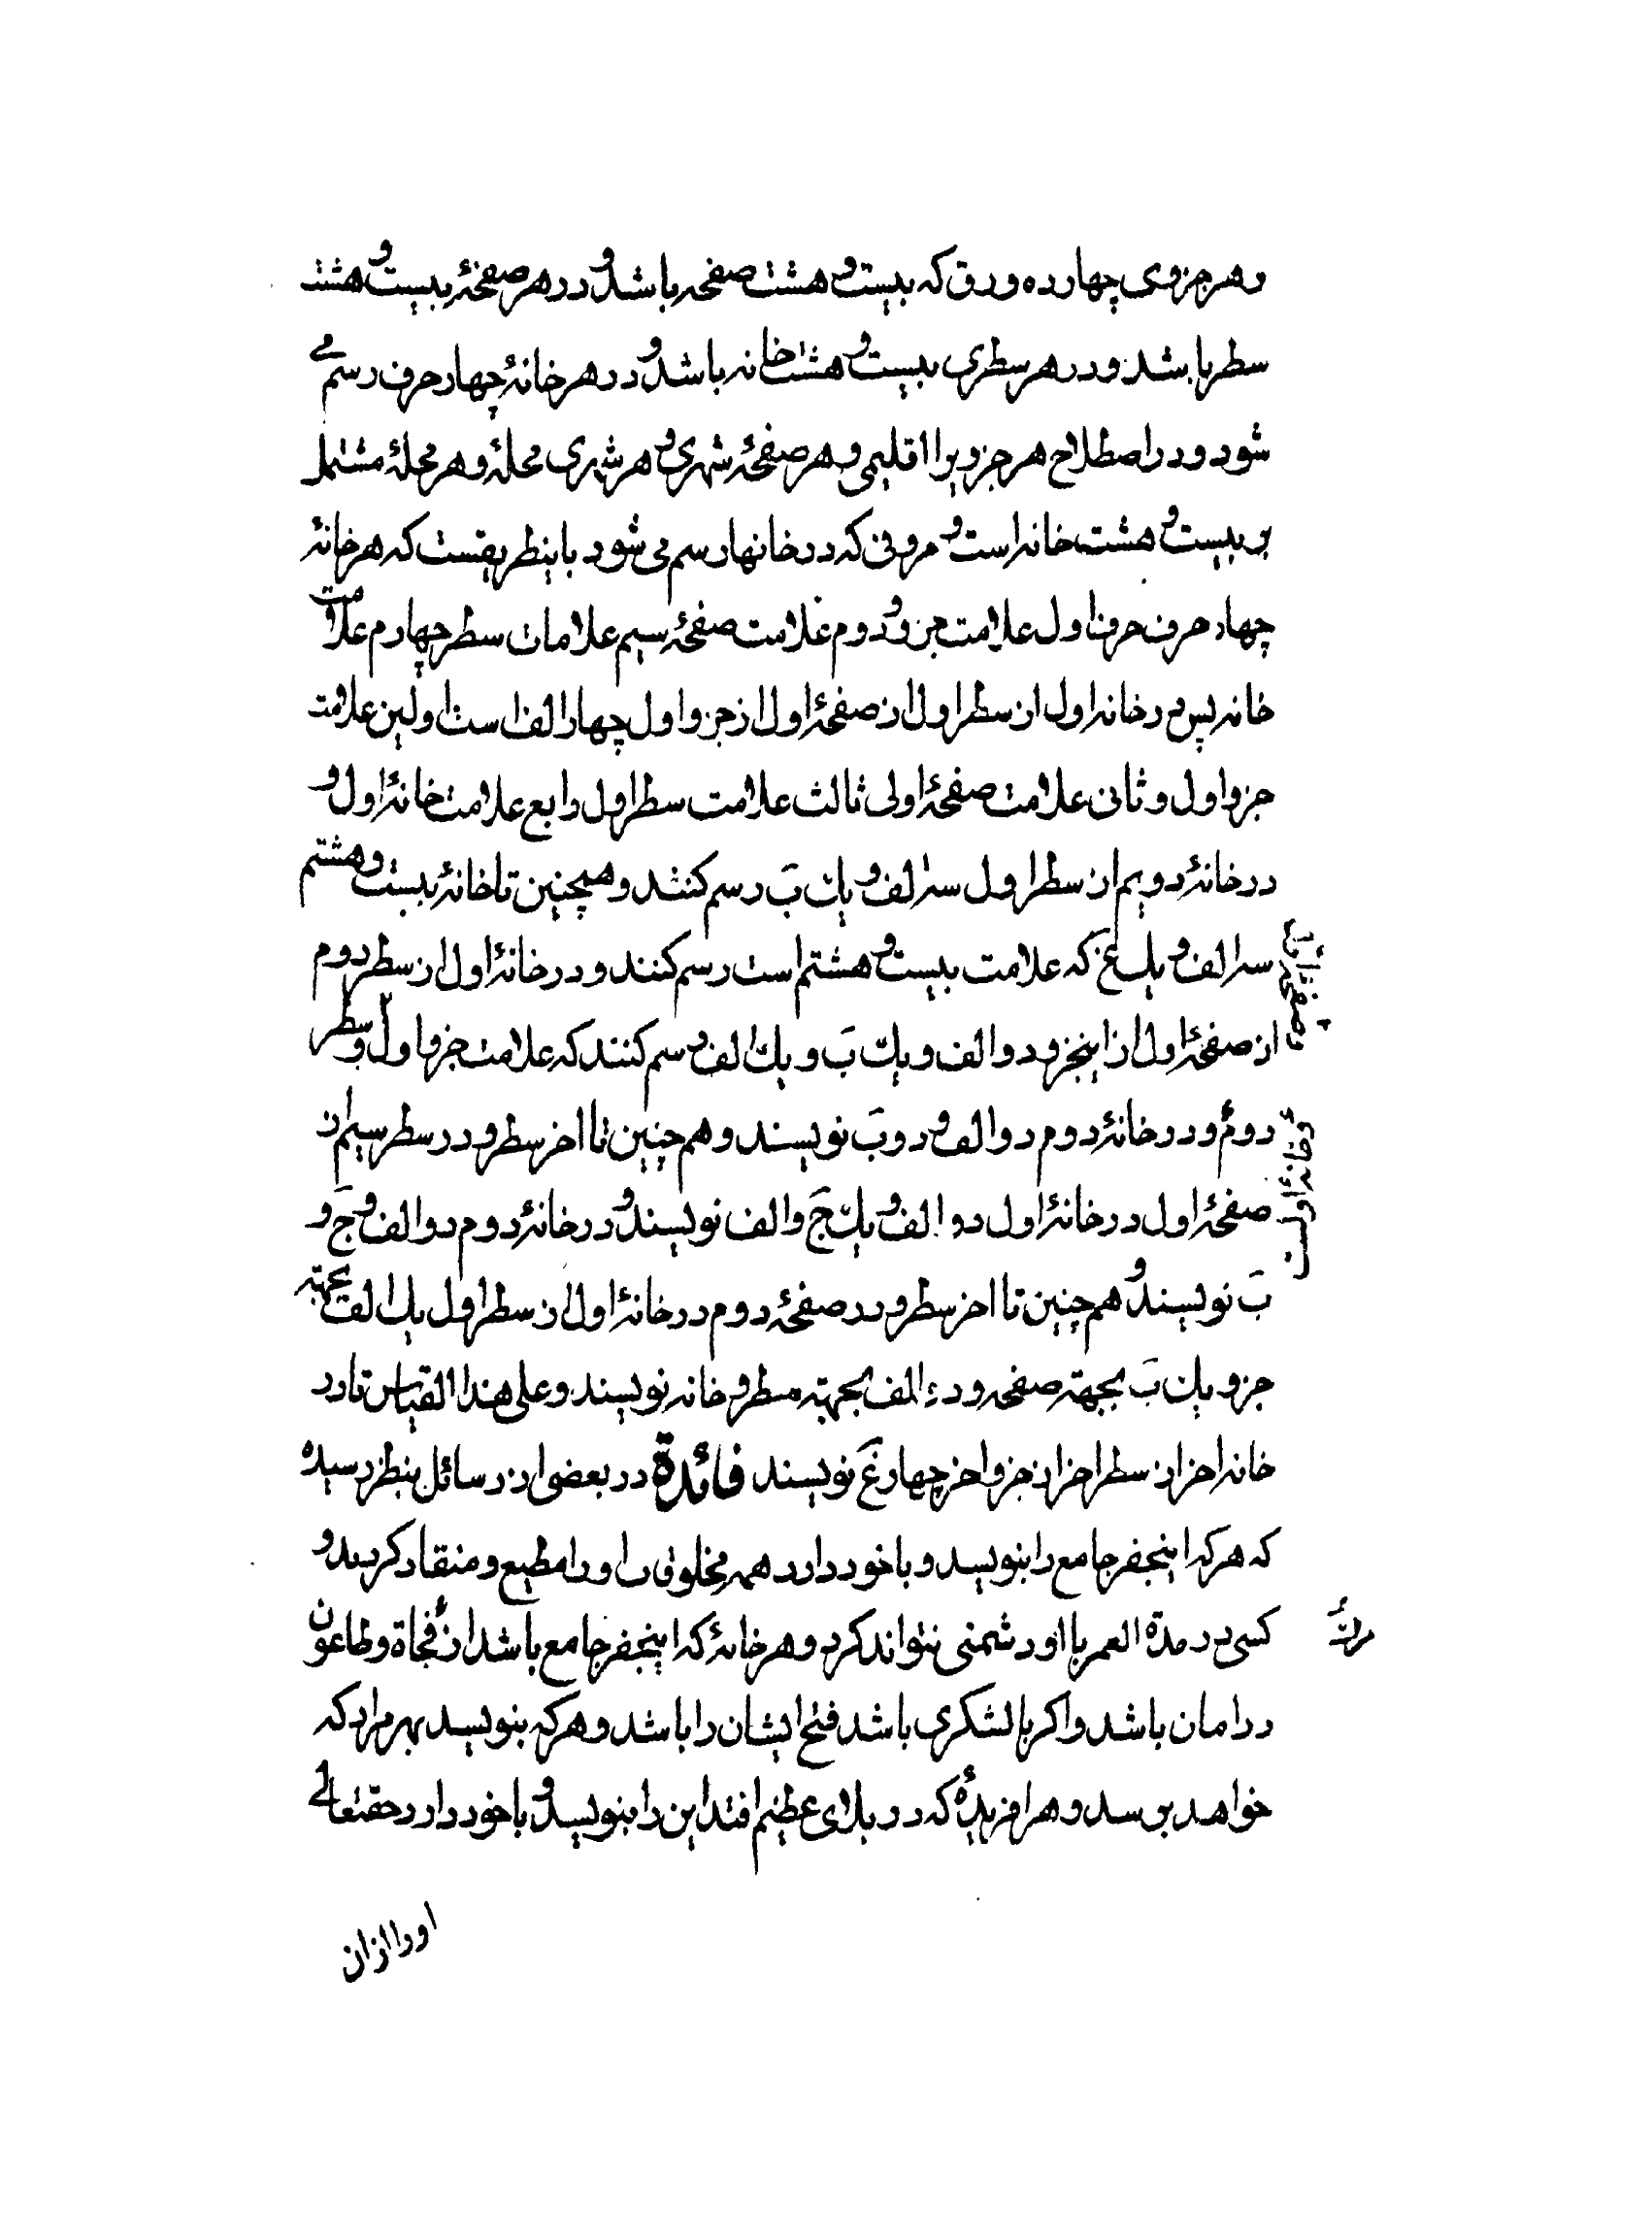 وهر جزوی چهارده ورق که بیست و هشت صفحه باشد و در هر صفحۀ بیست و هشت
سطر باشد و در هر سطری بیست و هشت خانه باشد و در هر خانۀ چهار حرف رسم می
شود و در اصطلاح هر جزویرا اقلیمی و هر صفحۀ شهری و هر شهری محلۀ و هر محلۀ مشتمل
بر بیست و هشت خانه است و حروفی که در خانها رسم می شود باینطریقست که هر خانۀ
چهار حرف حرف اول علامت جزو و دوم علامت صفحۀ سیم علامات سطر چهارم علامت
خانه پس در خانه اول از سطر اول از صفحۀ اول از جزو اول چهار الف است اولین علامت
جزو اول و ثانی علامت صفحۀ اولی ثالث علامت سطر اول رابع علامت خانۀ اول و
در خانۀ دویم از سطر اول سه الف و یک بَ رسم کنند و همچنین تا خانۀ بیست و هشتم
سه الف و یک غَ که علامت بیست و هشتم است رسم کنند و در خانۀ اول از سطر دوم
از صفحۀ اول از اینجزو دو الف و یک بَ و یک الف رسم کنند که علامت جزو اول و سطر
دوم و در خانۀ دوم دو الف و دو بَ نویسند و هم چنین تا اخر سطر و در سطر سیم از
و خانۀ اول است
صفحۀ اول در خانۀ اول دو الف و یک جَ و الف نویسند و در خانۀ دوم دو الف و جَ و
بَ نویسند و هم چنین تا اخر سطر و در صفحۀ دوم در خانۀ اول از سطر اول یک الف بجهته
جزو و یک بَ بجهته صفحه و دو الف بجهته سطر و خانه نویسند و علی هذا القیاس تا در
خانه اخر از سطر اخر از جزو اخر چهار غَ نویسند فائدة در بعضی از رسائل بنظر رسیده
که هر که اینجفر جامع را بنویسد و با خود دارد همه مخلوق او را مطیع و منقاد کردند و
کسی در مدة العمر با او دشمنی نتواند کرد و هر خانۀ که اینجفر جامع باشد از فجاة و طاعون
در امان باشد و اکر با لشکری باشد فتح ایشان را باشد و هر که بنویسد بهر مراد که
خواهد برسد و هر افریدۀ که در بلای عظیم افتد این را بنویسد و با خود دارد حقتعالی
او را از ان